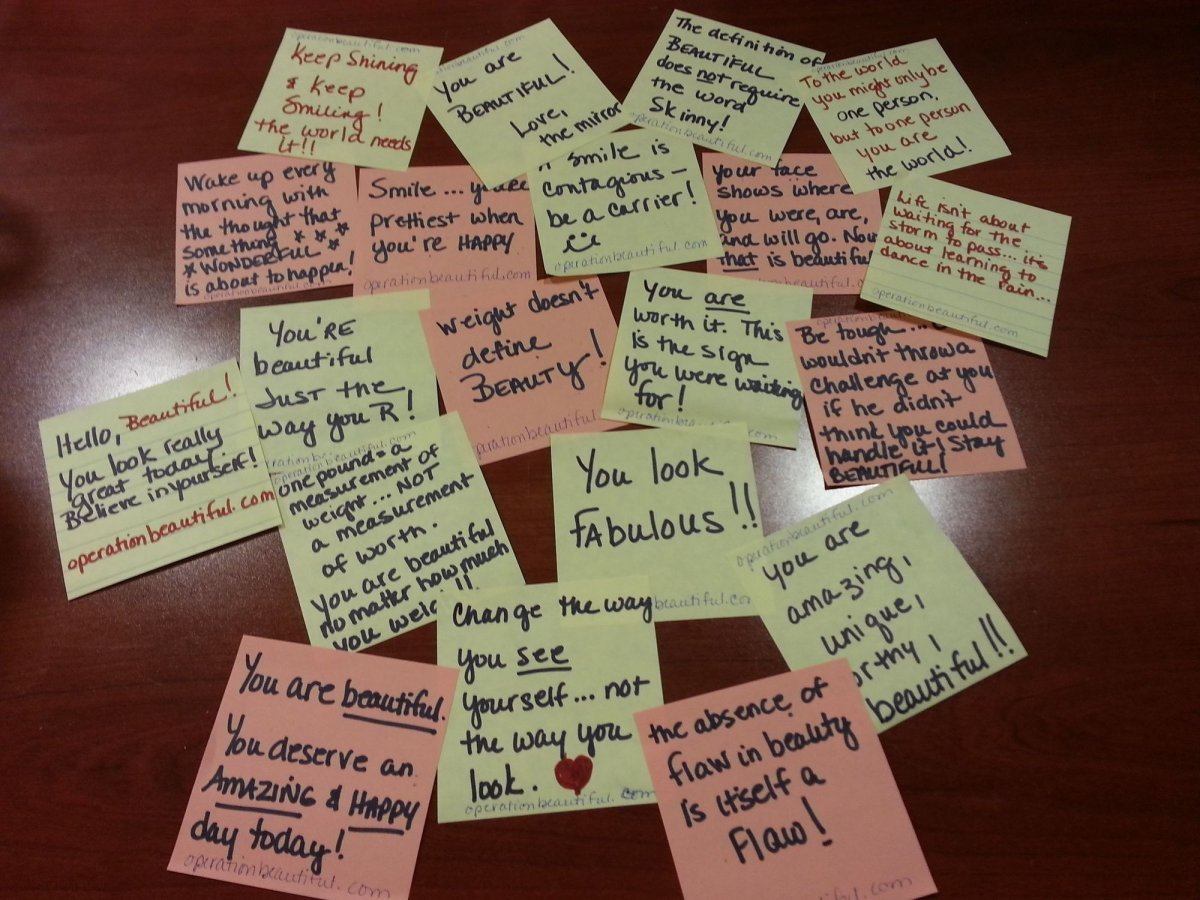 operationbeautiful.com
Keep Shining
& Keep
Smiling!
the world needs
it!!
operationbeautiful.com
You are
BEAUTIFUL!
Love,
the mirror
The definition of
BEAUTIFUL
does not require
the word
Skinny!
operationbeautiful.com
operationbeautiful.com
To the world
you might only be
one person,
but to one person
you are
the world!
Wake up every
morning with
the thought that
something
WONDERFUL
is about to happen!
operationbeautiful.com
Smile ... you're
prettiest when
you're HAPPY
operationbeautiful.com
A smile is
contagious –
be a carrier!
operationbeautiful.com
Your face
shows where
you were, are,
and will go. Now
that is beautiful
operationbeautiful.com
Life isn't about
waiting for the
storm to pass... it's
about learning to
dance in the rain...
operationbeautiful.com
You'RE
beautiful
Just the
way you R!
operationbeautiful.com
Weight doesn't
define
BEAUTY!
operationbeautiful
You are
worth it. This
is the sign
you were waiting
for!
operationbeautiful.com
operationbeautiful.com
Be tough...
wouldn't throw a
challenge at you
if he didn't
think you could
handle it! Stay
BEAUTIFUL!
Hello, Beautiful!
You look really
great today.
Believe in yourself!
operationbeautiful.com
operationbeautiful.com
one pound = a
measurement of
weight... NOT
a measurement
of worth.
You are beautiful
no matter how much
you weigh!!
You look
FABULOUS!!
beautiful.com
operationbeautiful.com
You are
amazing,
unique,
worthy,
beautiful!!
Change the way
you see
yourself... not
the way you
look.
operationbeautiful.com
You are beautiful.
You deserve an
AMAZING & HAPPY
day today!
operationbeautiful.com
the absence of
flaw in beauty
is itself a
Flaw!
operationbeautiful.com